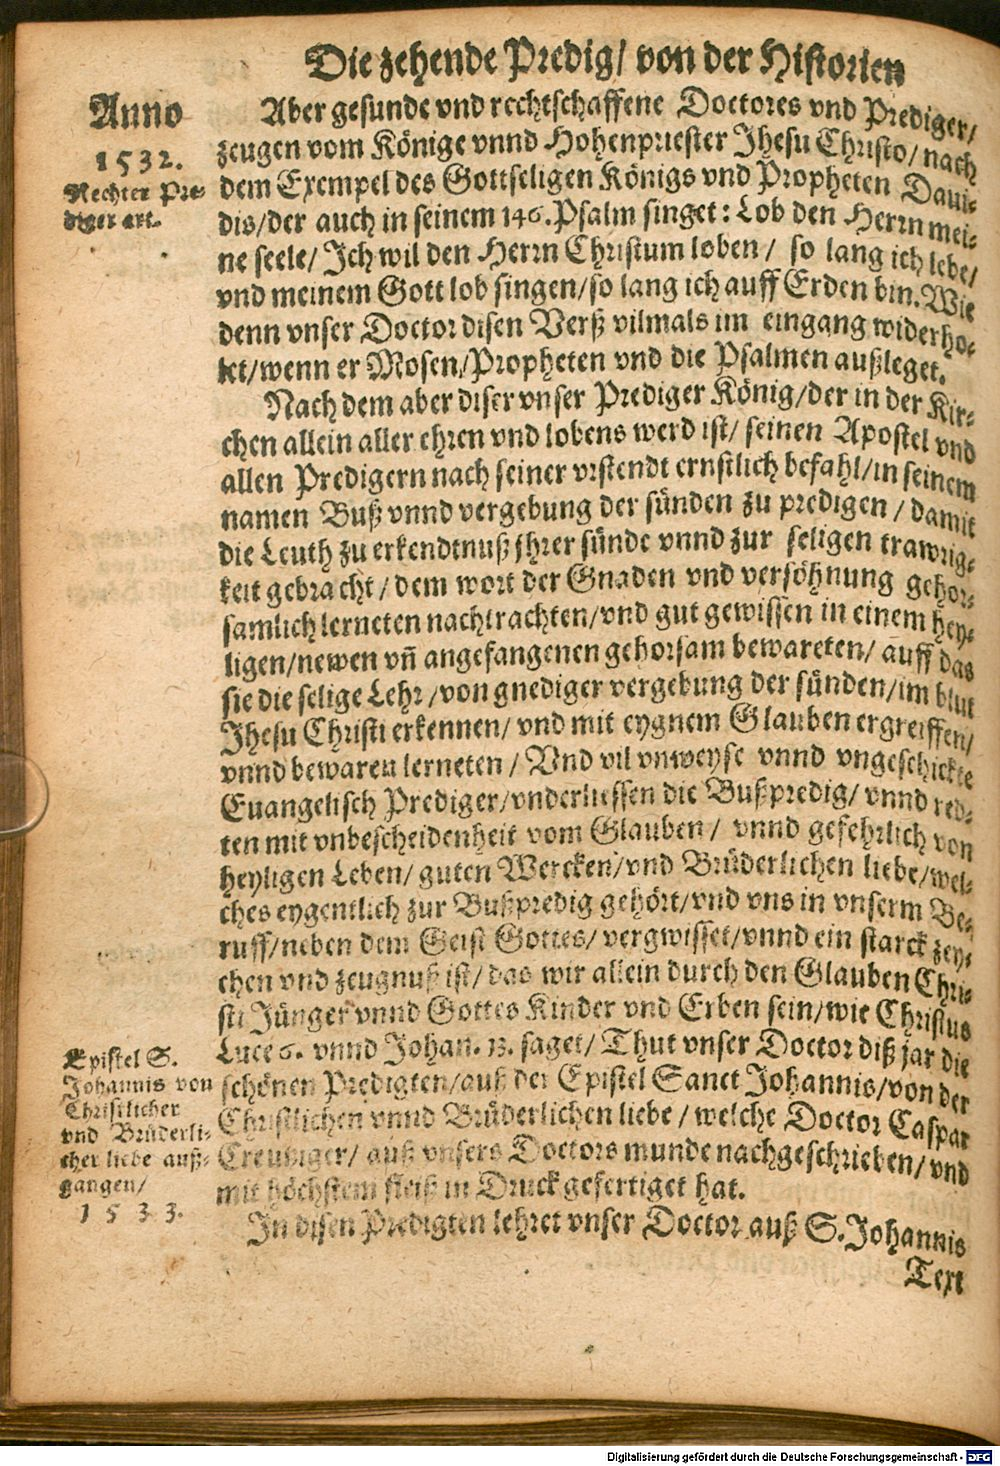 Die zehende Predig/ von der Historien
Anno
1532.
Rechter Pre-
diger art.
Aber gesunde vnd rechtschaffene Doctores vnd Prediger/
zeugen vom Könige vnnd Hohenpriester Jhesu Christo/ nach
dem Exempel des Gottseligen Königs vnd Propheten Daui-
dis/der auch in seinem 146. Psalm singet: Lob den Herrn mei-
ne seele/ Jch wil den Herrn Christum loben/ so lang ich lebe/
vnd meinem Gott lob singen/so lang ich auff Erden bin. Wie
denn vnser Doctor disen Verß vilmals im eingang widerho-
let/wenn er Mosen/Propheten vnd die Psalmen außleget.
Nach dem aber diser vnser Prediger König/der in der Kir-
chen allein aller ehren vnd lobens werd ist/ seinen Apostel vnd
allen Predigern nach seiner vrstendt ernstlich befahl/in seinem
namen Buß vnnd vergebung der sünden zu predigen / damit
die Leuth zu erkendtnuß jhrer sünde vnnd zur seligen trawrig-
keit gebracht/ dem wort der Gnaden vnd versöhnung gehor-
samlich lerneten nachtrachten/vnd gut gewissen in einem hey-
ligen/newen vñ angefangenen gehorsam bewareten/ auff das
sie die selige Lehr/von gnediger vergebung der sünden/im blut
Jhesu Christi erkennen/ vnd mit eygnem Glauben ergreiffen/
vnnd bewaren lerneten / Vnd vil vnweyse vnnd vngeschickte
Euangelisch Prediger/vnderliessen die Bußpredig/ vnnd red-
ten mit vnbescheidenheit vom Glauben/ vnnd gefehrlich von
heyligen Leben/ guten Wercken/vnd Brüderlichen liebe/wel-
ches eygentlich zur Bußpredig gehört/vnd vns in vnserm Be-
ruff/neben dem Geist Gottes/ vergwisset/vnnd ein starck zey-
chen vnd zeugnuß ist/ das wir allein durch den Glauben Chri-
sti Jünger vnnd Gottes Kinder vnd Erben sein/wie Christus
Luce 6. vnnd Johan. 13. saget/ Thut vnser Doctor diß jar die
schönen Predigten/auß der Epistel Sanct Johannis/von der
Christlichen vnnd Brüderlichen liebe / welche Doctor Caspar
Creutziger/ auß vnsers Doctors munde nachgeschrieben/vnd
mit höchstem fleiß in Druck gefertiget hat.
Epistel S.
Johannis von
Christlicher
vnd Brüderli-
cher liebe auß-
gangen/
1533.
In disen Predigten lehret vnser Doctor auß S. Johannis
Text
Digitalisierung gefördert durch die Deutsche Forschungsgemeinschaft - DFG